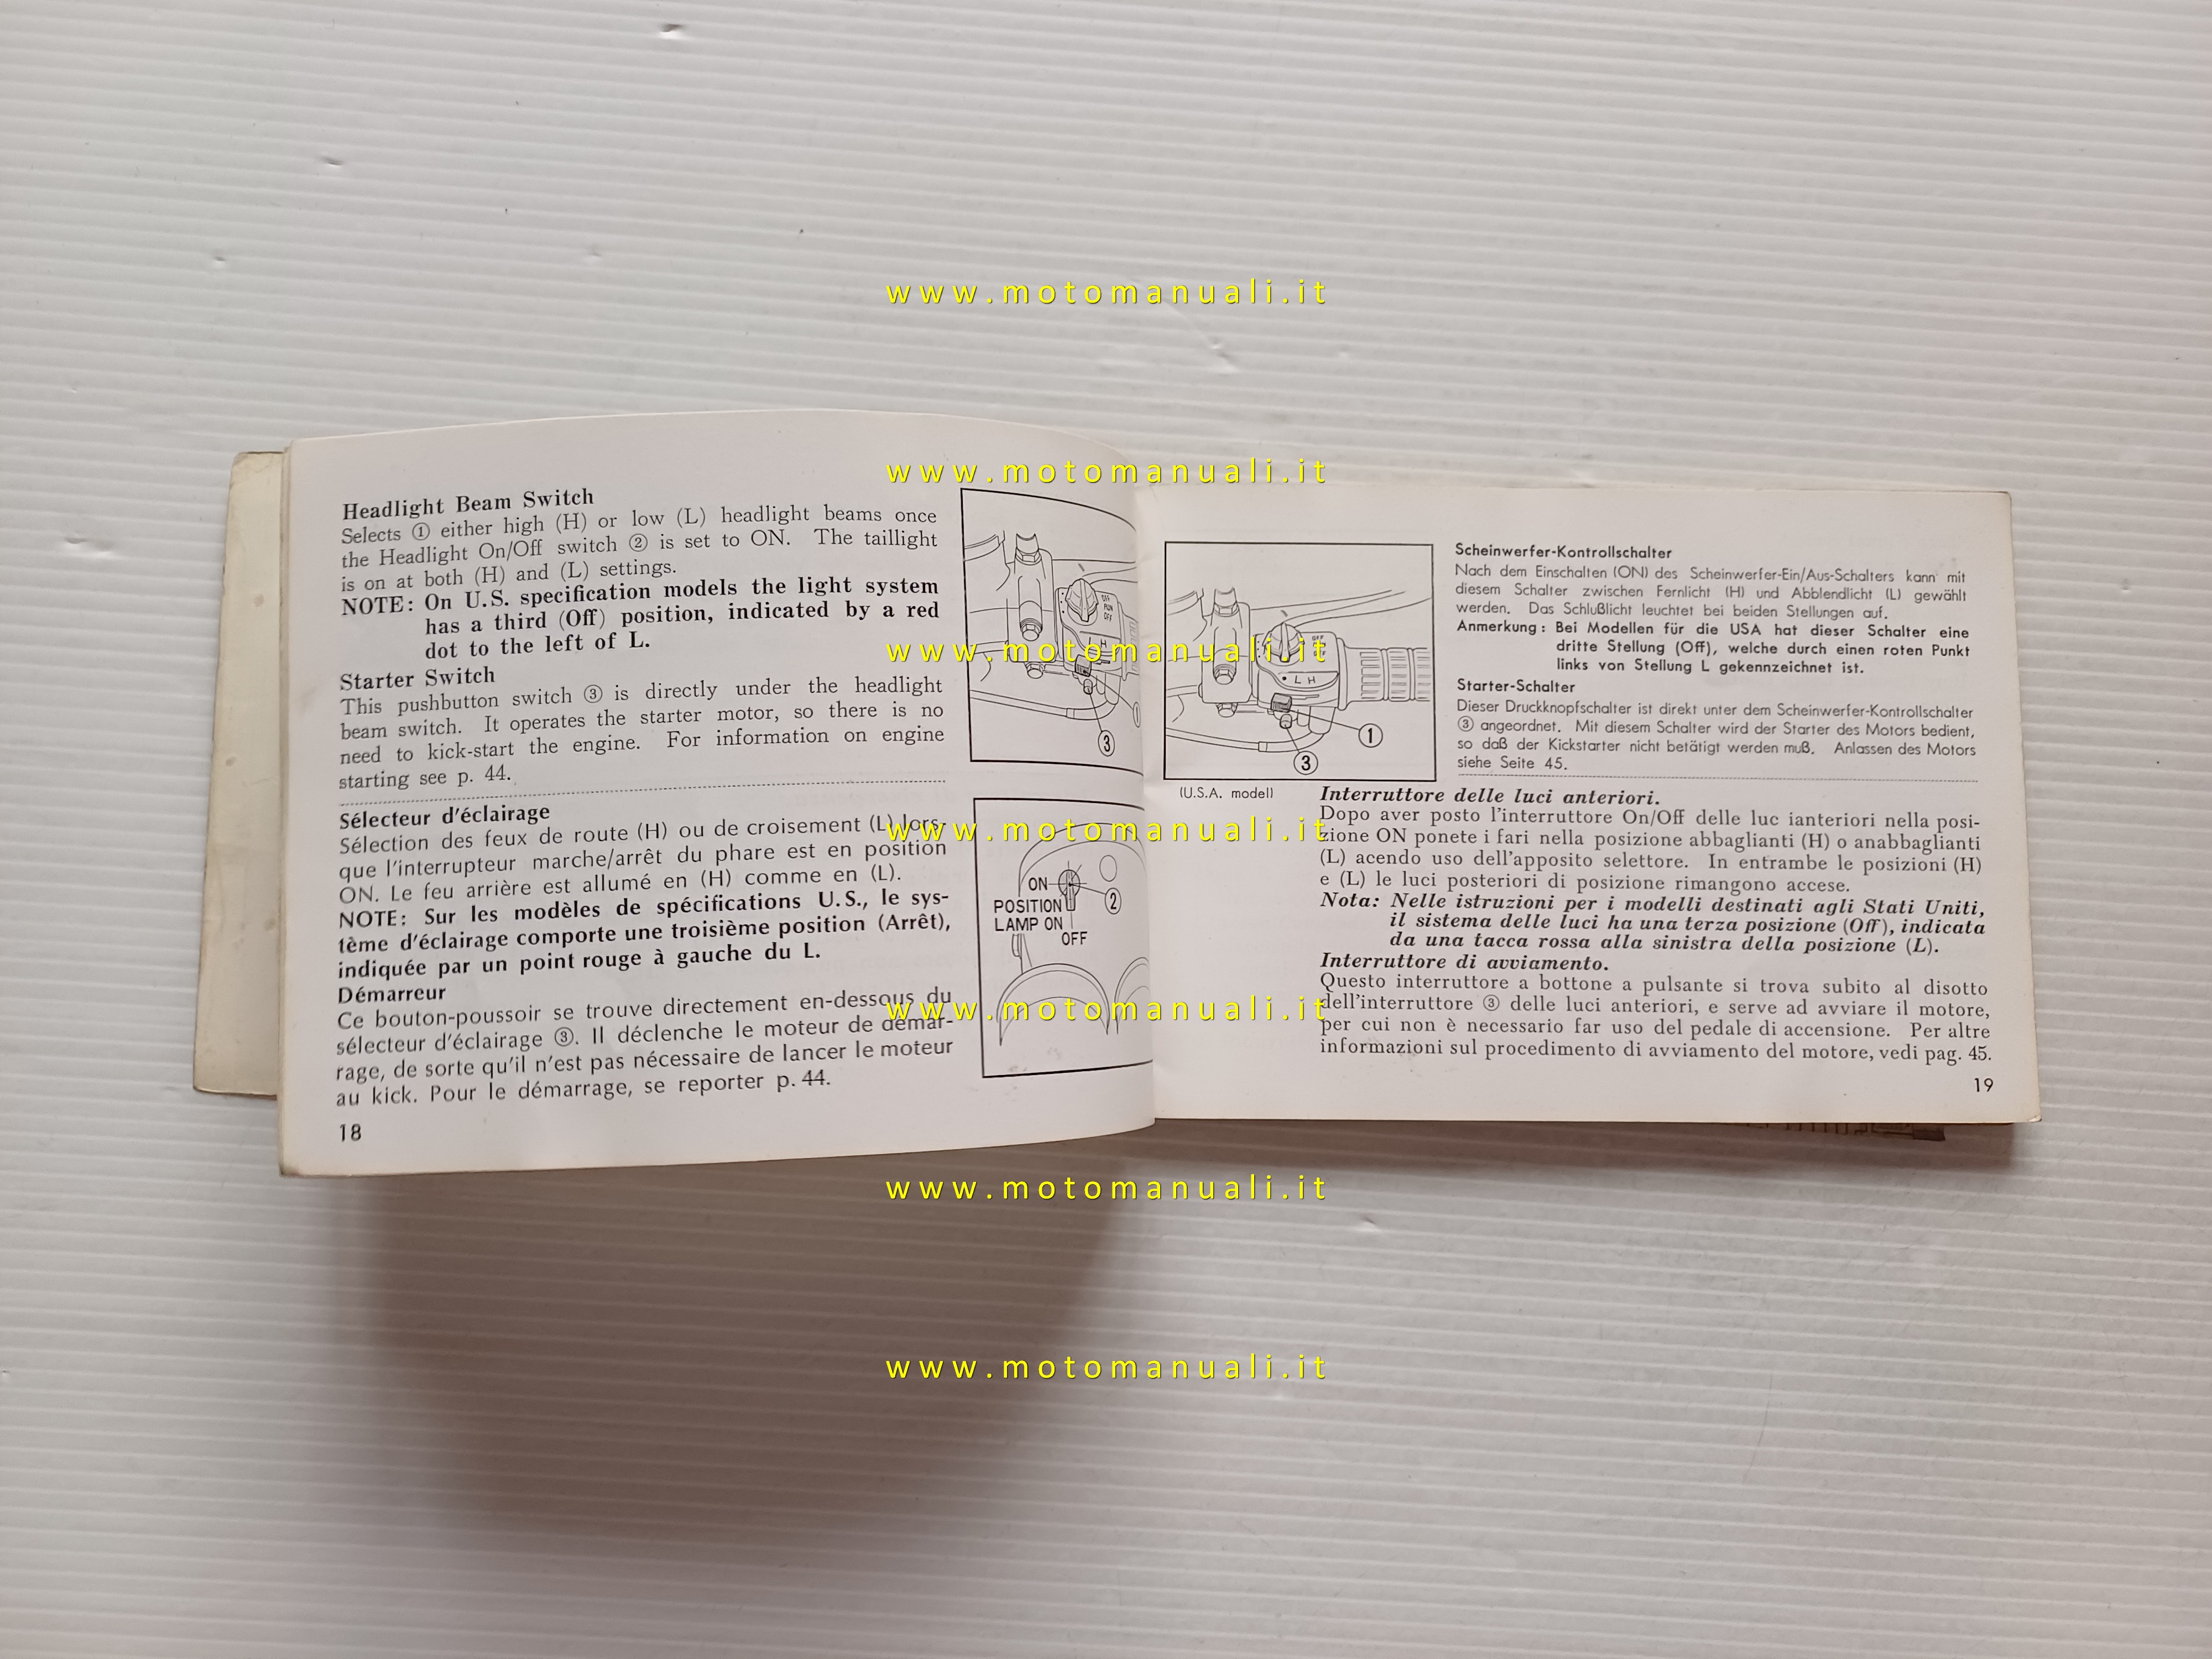 www.motomanuali.it
www.motomanuali.it
Headlight Beam Switch
Selects ① either high (H) or low (L) headlight beams once
the Headlight On/Off switch ② is set to ON. The taillight
is on at both (H) and (L) settings.
NOTE: On U.S. specification models the light system
has a third (Off) position, indicated by a red
dot to the left of L.
Starter Switch
This pushbutton switch ③ is directly under the headlight
beam switch. It operates the starter motor, so there is no
need to kick-start the engine. For information on engine
starting see p. 44.
Sélecteur d'éclairage
Sélection des feux de route (H) ou de croisement (L) lors-
que l'interrupteur marche/arrêt du phare est en position
ON. Le feu arrière est allumé en (H) comme en (L).
NOTE: Sur les modèles de spécifications U.S., le sys-
tème d'éclairage comporte une troisième position (Arrêt),
indiquée par un point rouge à gauche du L.
Démarreur
Ce bouton-poussoir se trouve directement en-dessous du
sélecteur d'éclairage ③. Il déclenche le moteur de démar-
rage, de sorte qu'il n'est pas nécessaire de lancer le moteur
au kick. Pour le démarrage, se reporter p. 44.
18
OFF
RUN
OFF
L H
③
ON
POSITION
LAMP ON
OFF
②
OFF
OFF
• L H
①
③
(U.S.A. model)
Scheinwerfer-Kontrollschalter
Nach dem Einschalten (ON) des Scheinwerfer-Ein/Aus-Schalters kann mit
diesem Schalter zwischen Fernlicht (H) und Abblendlicht (L) gewählt
werden. Das Schlußlicht leuchtet bei beiden Stellungen auf.
Anmerkung: Bei Modellen für die USA hat dieser Schalter eine
dritte Stellung (Off), welche durch einen roten Punkt
links von Stellung L gekennzeichnet ist.
Starter-Schalter
Dieser Druckknopfschalter ist direkt unter dem Scheinwerfer-Kontrollschalter
③ angeordnet. Mit diesem Schalter wird der Starter des Motors bedient,
so daß der Kickstarter nicht betätigt werden muß. Anlassen des Motors
siehe Seite 45.
Interruttore delle luci anteriori.
Dopo aver posto l'interruttore On/Off delle luc ianteriori nella posi-
zione ON ponete i fari nella posizione abbaglianti (H) o anabbaglianti
(L) acendo uso dell'apposito selettore. In entrambe le posizioni (H)
e (L) le luci posteriori di posizione rimangono accese.
Nota: Nelle istruzioni per i modelli destinati agli Stati Uniti,
il sistema delle luci ha una terza posizione (Off), indicata
da una tacca rossa alla sinistra della posizione (L).
Interruttore di avviamento.
Questo interruttore a bottone a pulsante si trova subito al disotto
dell'interruttore ③ delle luci anteriori, e serve ad avviare il motore,
per cui non è necessario far uso del pedale di accensione. Per altre
informazioni sul procedimento di avviamento del motore, vedi pag. 45.
19
www.motomanuali.it
www.motomanuali.it
www.motomanuali.it
www.motomanuali.it
www.motomanuali.it